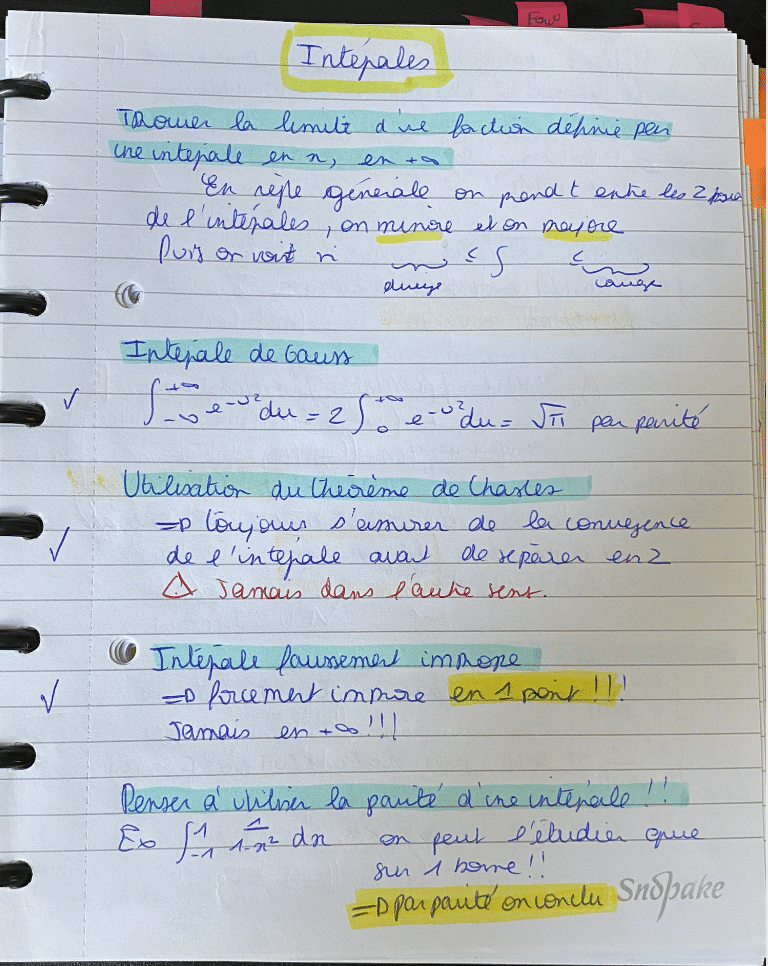 Fow
Intégrales
Trouver la limite d'une fonction définie par
une intégrale en x, en +∞
En règle générale on prend t entre les 2 bornes
de l'intégrales, on minore et on majore
Puis on voit si ≤ ∫ ≤
diverge converge
Intégrale de Gauss
✓ ∫_{-∞}^{+∞} e^{-u²} du = 2 ∫_0^{+∞} e^{-u²} du = √π par parité
Utilisation du théorème de Chasles
=> toujours s'assurer de la convergence
✓ de l'intégrale avant de séparer en 2
⚠ Jamais dans l'autre sens.
Intégrale faussement impropre
✓ => forcement impropre en 1 point !!!
Jamais en +∞ !!!
Penser à utiliser la parité d'une intégrale !!
Ex ∫_{-1}^{1} 1/(1-x²) dx on peut l'étudier que
sur 1 borne !!
=> par parité on conclu
Snopake